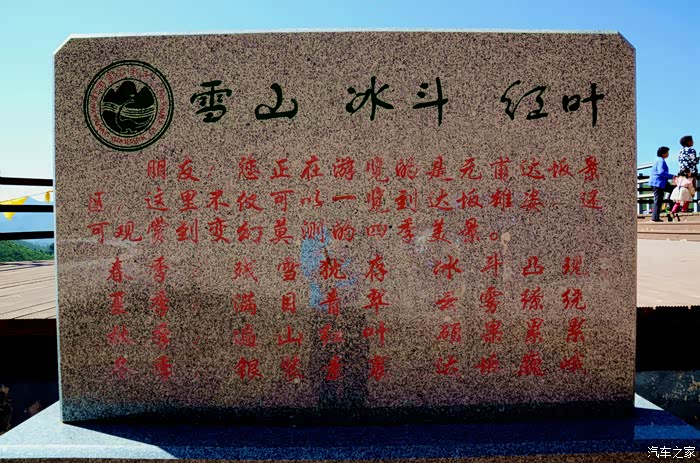 雪山 冰斗 红叶
朋友 您正在游览的是元甫达坂景
区 这里不仅可以一览到达坂雄姿 还
可观赏到变幻莫测的四季美景。
春季 残雪犹存 冰斗凸现
夏季 满目青翠 云雾缭绕
秋季 满山红叶 硕果累累
冬季 银装素裹 达坂巍峨
汽车之家